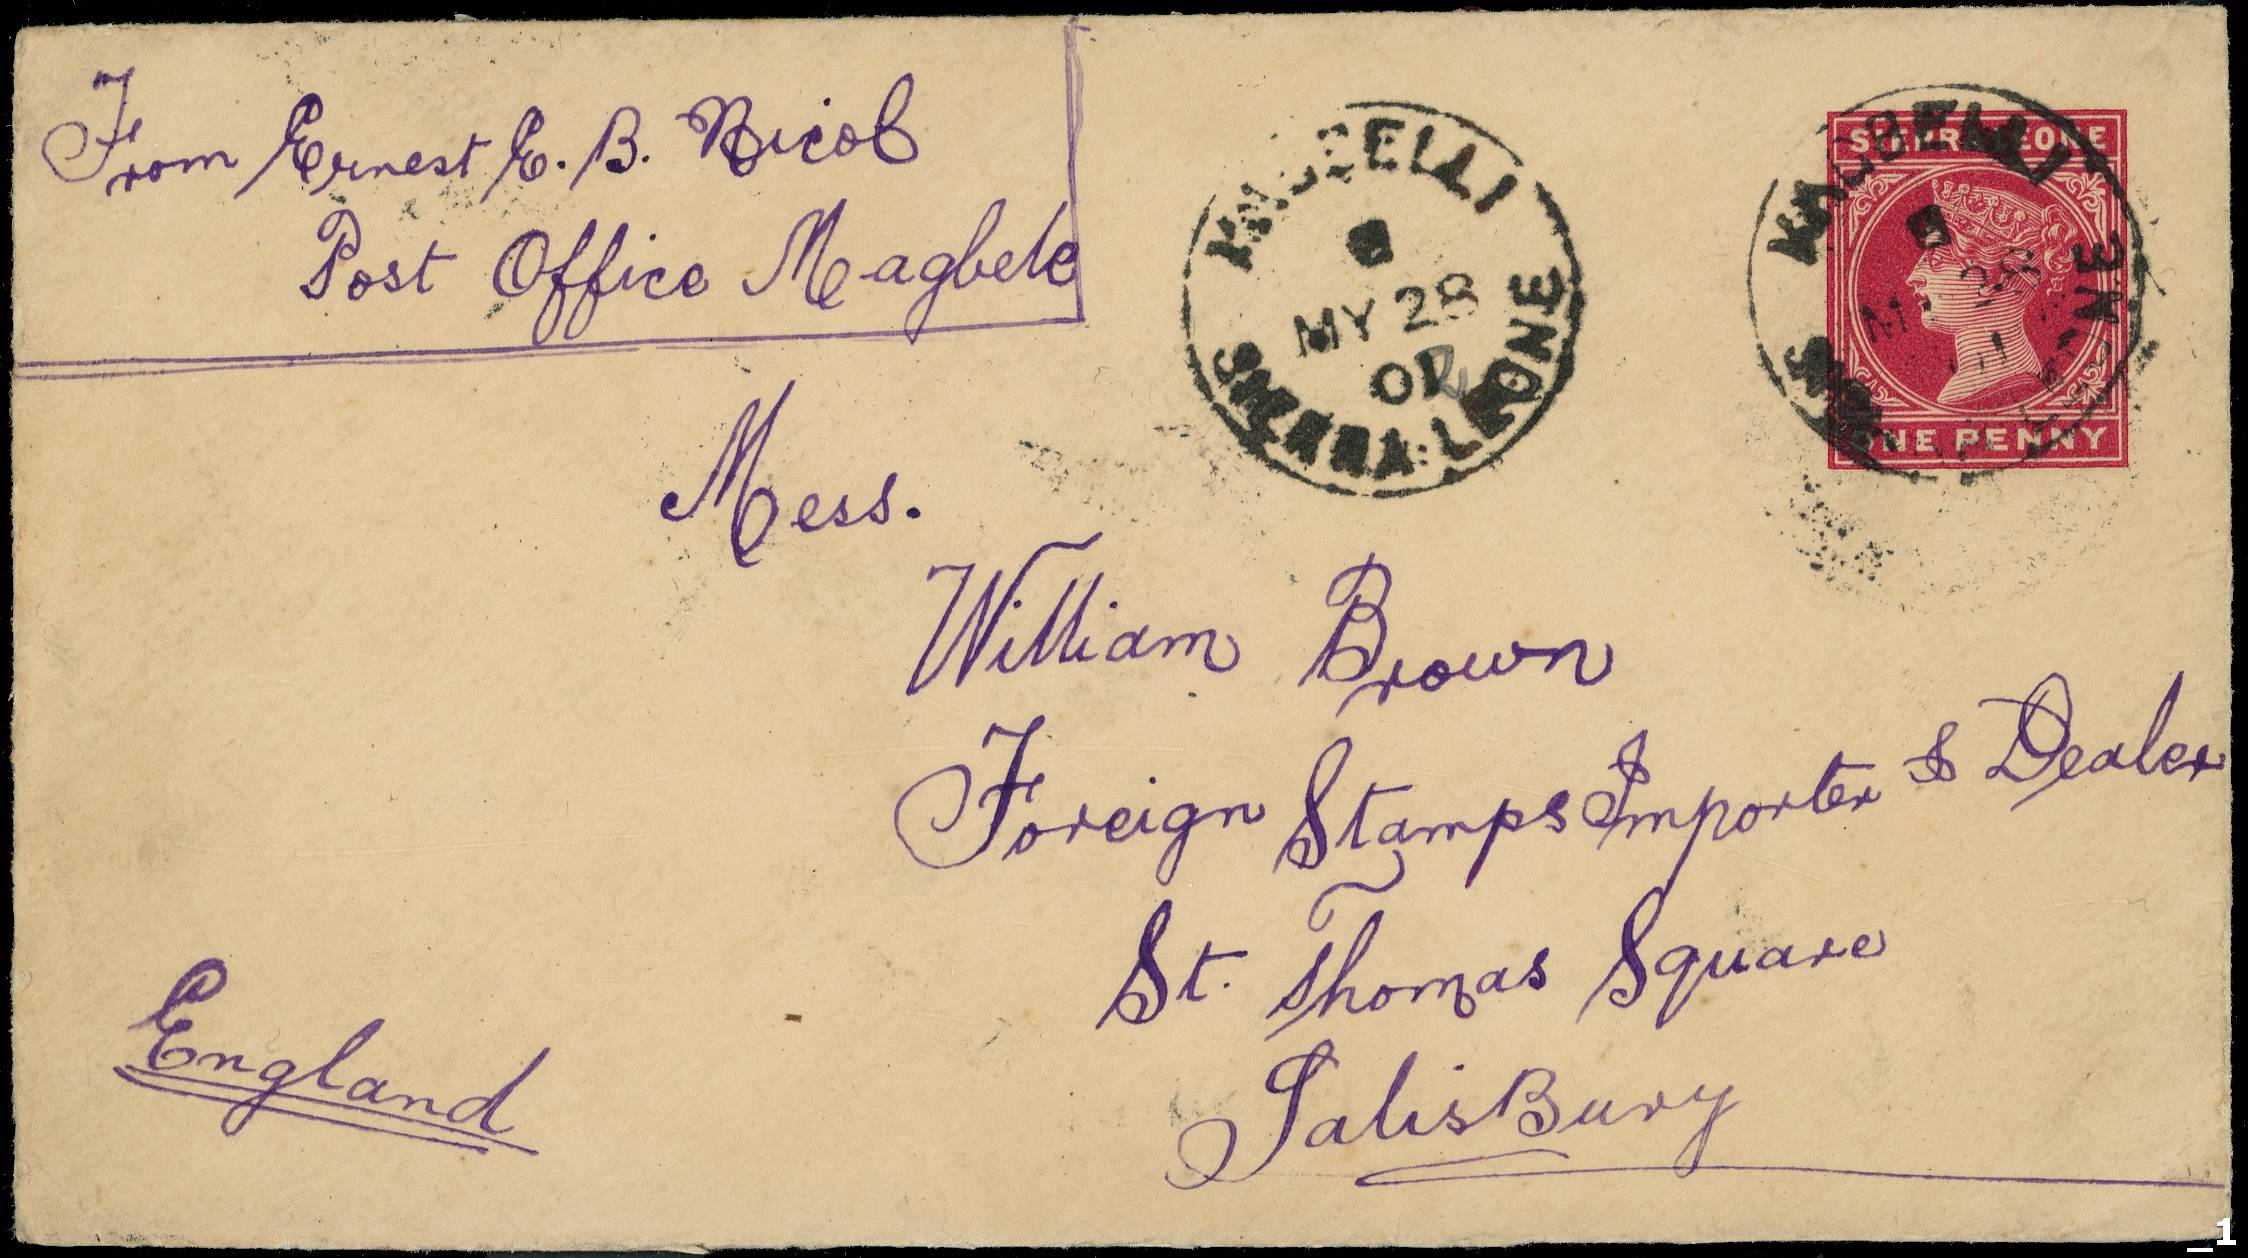 From Ernest E. B. Nicol
Post Office Magbele
MAGBELLI
MY 28
SIERRA LEONE
SIERRA LEONE
ONE PENNY
Mess.
William Brown
Foreign Stamps Importer & Dealer
St. Thomas Square
SalisBury
England
_1